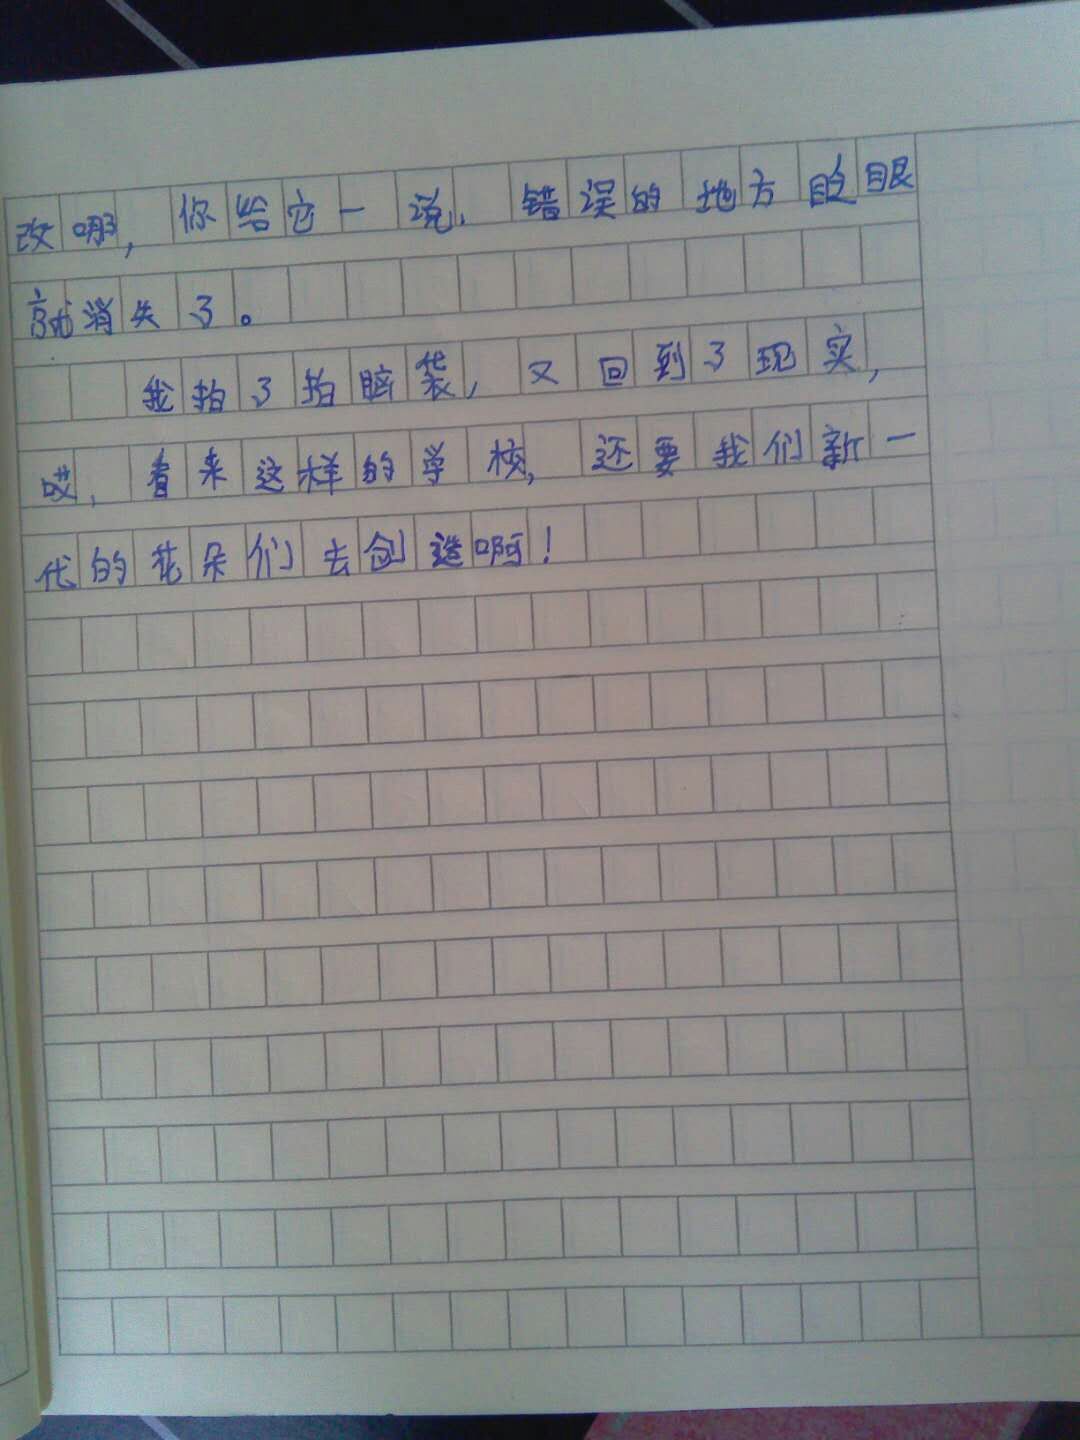 改哪,你给它一说,错误的地方眨眼
就消失了。
我拍了拍脑袋,又回到了现实,
哎,看来这样的学校,还要我们新一
代的花朵们去创造啊!